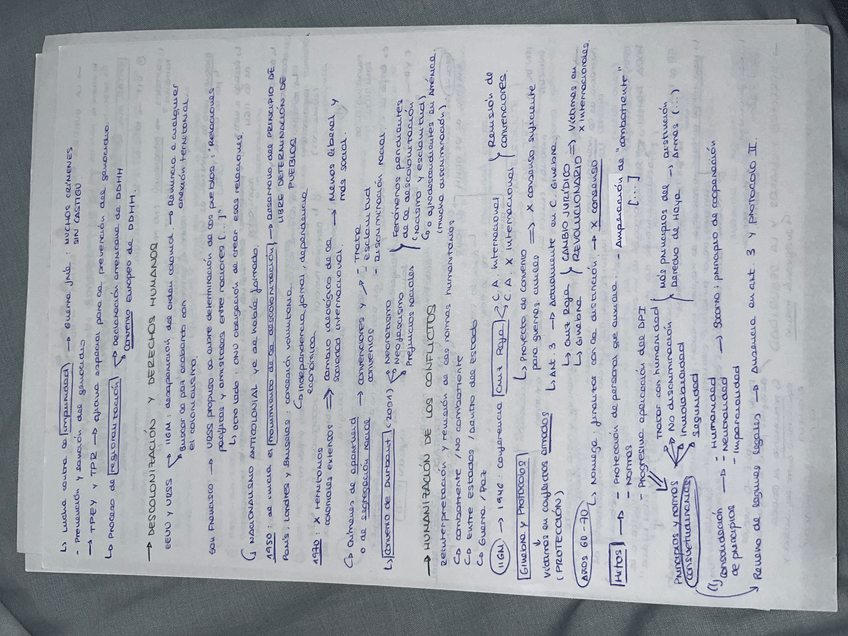 ↳ Lucha contra la impunidad → Guerra fría: MUCHOS CRÍMENES SIN CASTIGO
- Prevención y sanción del genocidio
→ TPEY y TPR → alguna especial para la prevención del genocidio
↳ Proceso de regionalización → Declaración americana de DDHH
↳ Convenio europeo de DDHH.
→ DESCOLONIZACIÓN Y DERECHOS HUMANOS
EEUU y URSS → IIGM: desaparición del orden colonial → Renuncia a cualquier
↳ Buscar la paz acabando con el colonialismo
expansión territorial.
San Francisco → URSS propuso la libre determinación de los pueblos: "Relaciones
pacíficas y amistosas entre naciones [...]"
↳ Otro lado: ONU obligación de crear esas relaciones.
NACIONALISMO ANTICOLONIAL ya se había formado.
1950: se inicia el movimiento de la descolonización → DESARROLLO DEL PRINCIPIO DE
LIBRE DETERMINACIÓN DE PUEBLOS
París: Londres y Bruselas: concesión voluntaria.
↳ Independencia formal, dependencia económica.
1970: X territorios coloniales extensos ⇒ cambio ideológico de la sociedad internacional. → Menos liberal y más social.
↳ Crímenes de apartheid o de segregación racial → convenciones y convenios
- Trata
- Esclavitud
- Discriminación racial.
↳ Convenio de Durban (2001)
Neonazismo
Neofascismo
Prejuicios raciales
Fenómenos pendientes de la descolonización (racismo y esclavitud)
↳ afrodescendientes en América (mucha discriminación).
→ HUMANIZACIÓN DE LOS CONFLICTOS
Reinterpretación y revisión de las normas humanitarias
↳ combatiente / No combatiente
↳ Entre estados / dentro del estado
↳ Guerra / Paz
IIGM → 1946 conferencia Cruz Roja
C.A. Internacional
C.A. X internacional
Revisión de convenciones.
Ginebra y Protocolos
↳ Proyecto de convenio para guerras civiles ⇒ X consenso suficiente
Víctimas en conflictos armados (PROTECCIÓN)
↳ Art 3 → Actualmente en C. Ginebra
Años 60-70
↳ Cruz Roja
↳ Ginebra
CAMBIO JURÍDICO REVOLUCIONARIO ⇒ Víctimas en X internacionales.
↳ Noruega: finalizar con la distinción → X consenso
Hitos → - Protección de personal de auxilio
- Normas
- Progresiva aplicación del DPI
- Ampliación de "combatiente"
[...]
Principios y normas consuetudinarias
Tratar con humanidad
No discriminación
Inviolabilidad
Seguridad
Más principios del Derecho de Haya → Distinción Armas (...)
Consolidación de principios →
- Humanidad
- Neutralidad → Socorro: principio de cooperación
- Imparcialidad
Relleno de lagunas legales → Ausencia en art. 3 y Protocolo II.